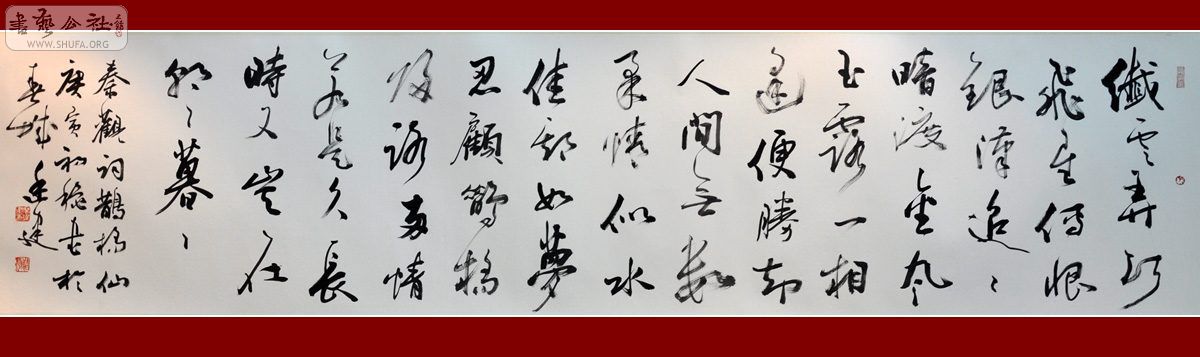 書藝公社
WWW.SHUFA.ORG
纖雲弄巧
飛星傳恨
銀漢迢〻
暗渡金風
玉露一相
逢便勝却
人間無數
柔情似水
佳期如夢
忍顧鵲橋
歸路兩情
若是久長
時又豈在
朝〻暮〻
秦觀詞鵲橋仙
庚寅初秋書於
春城